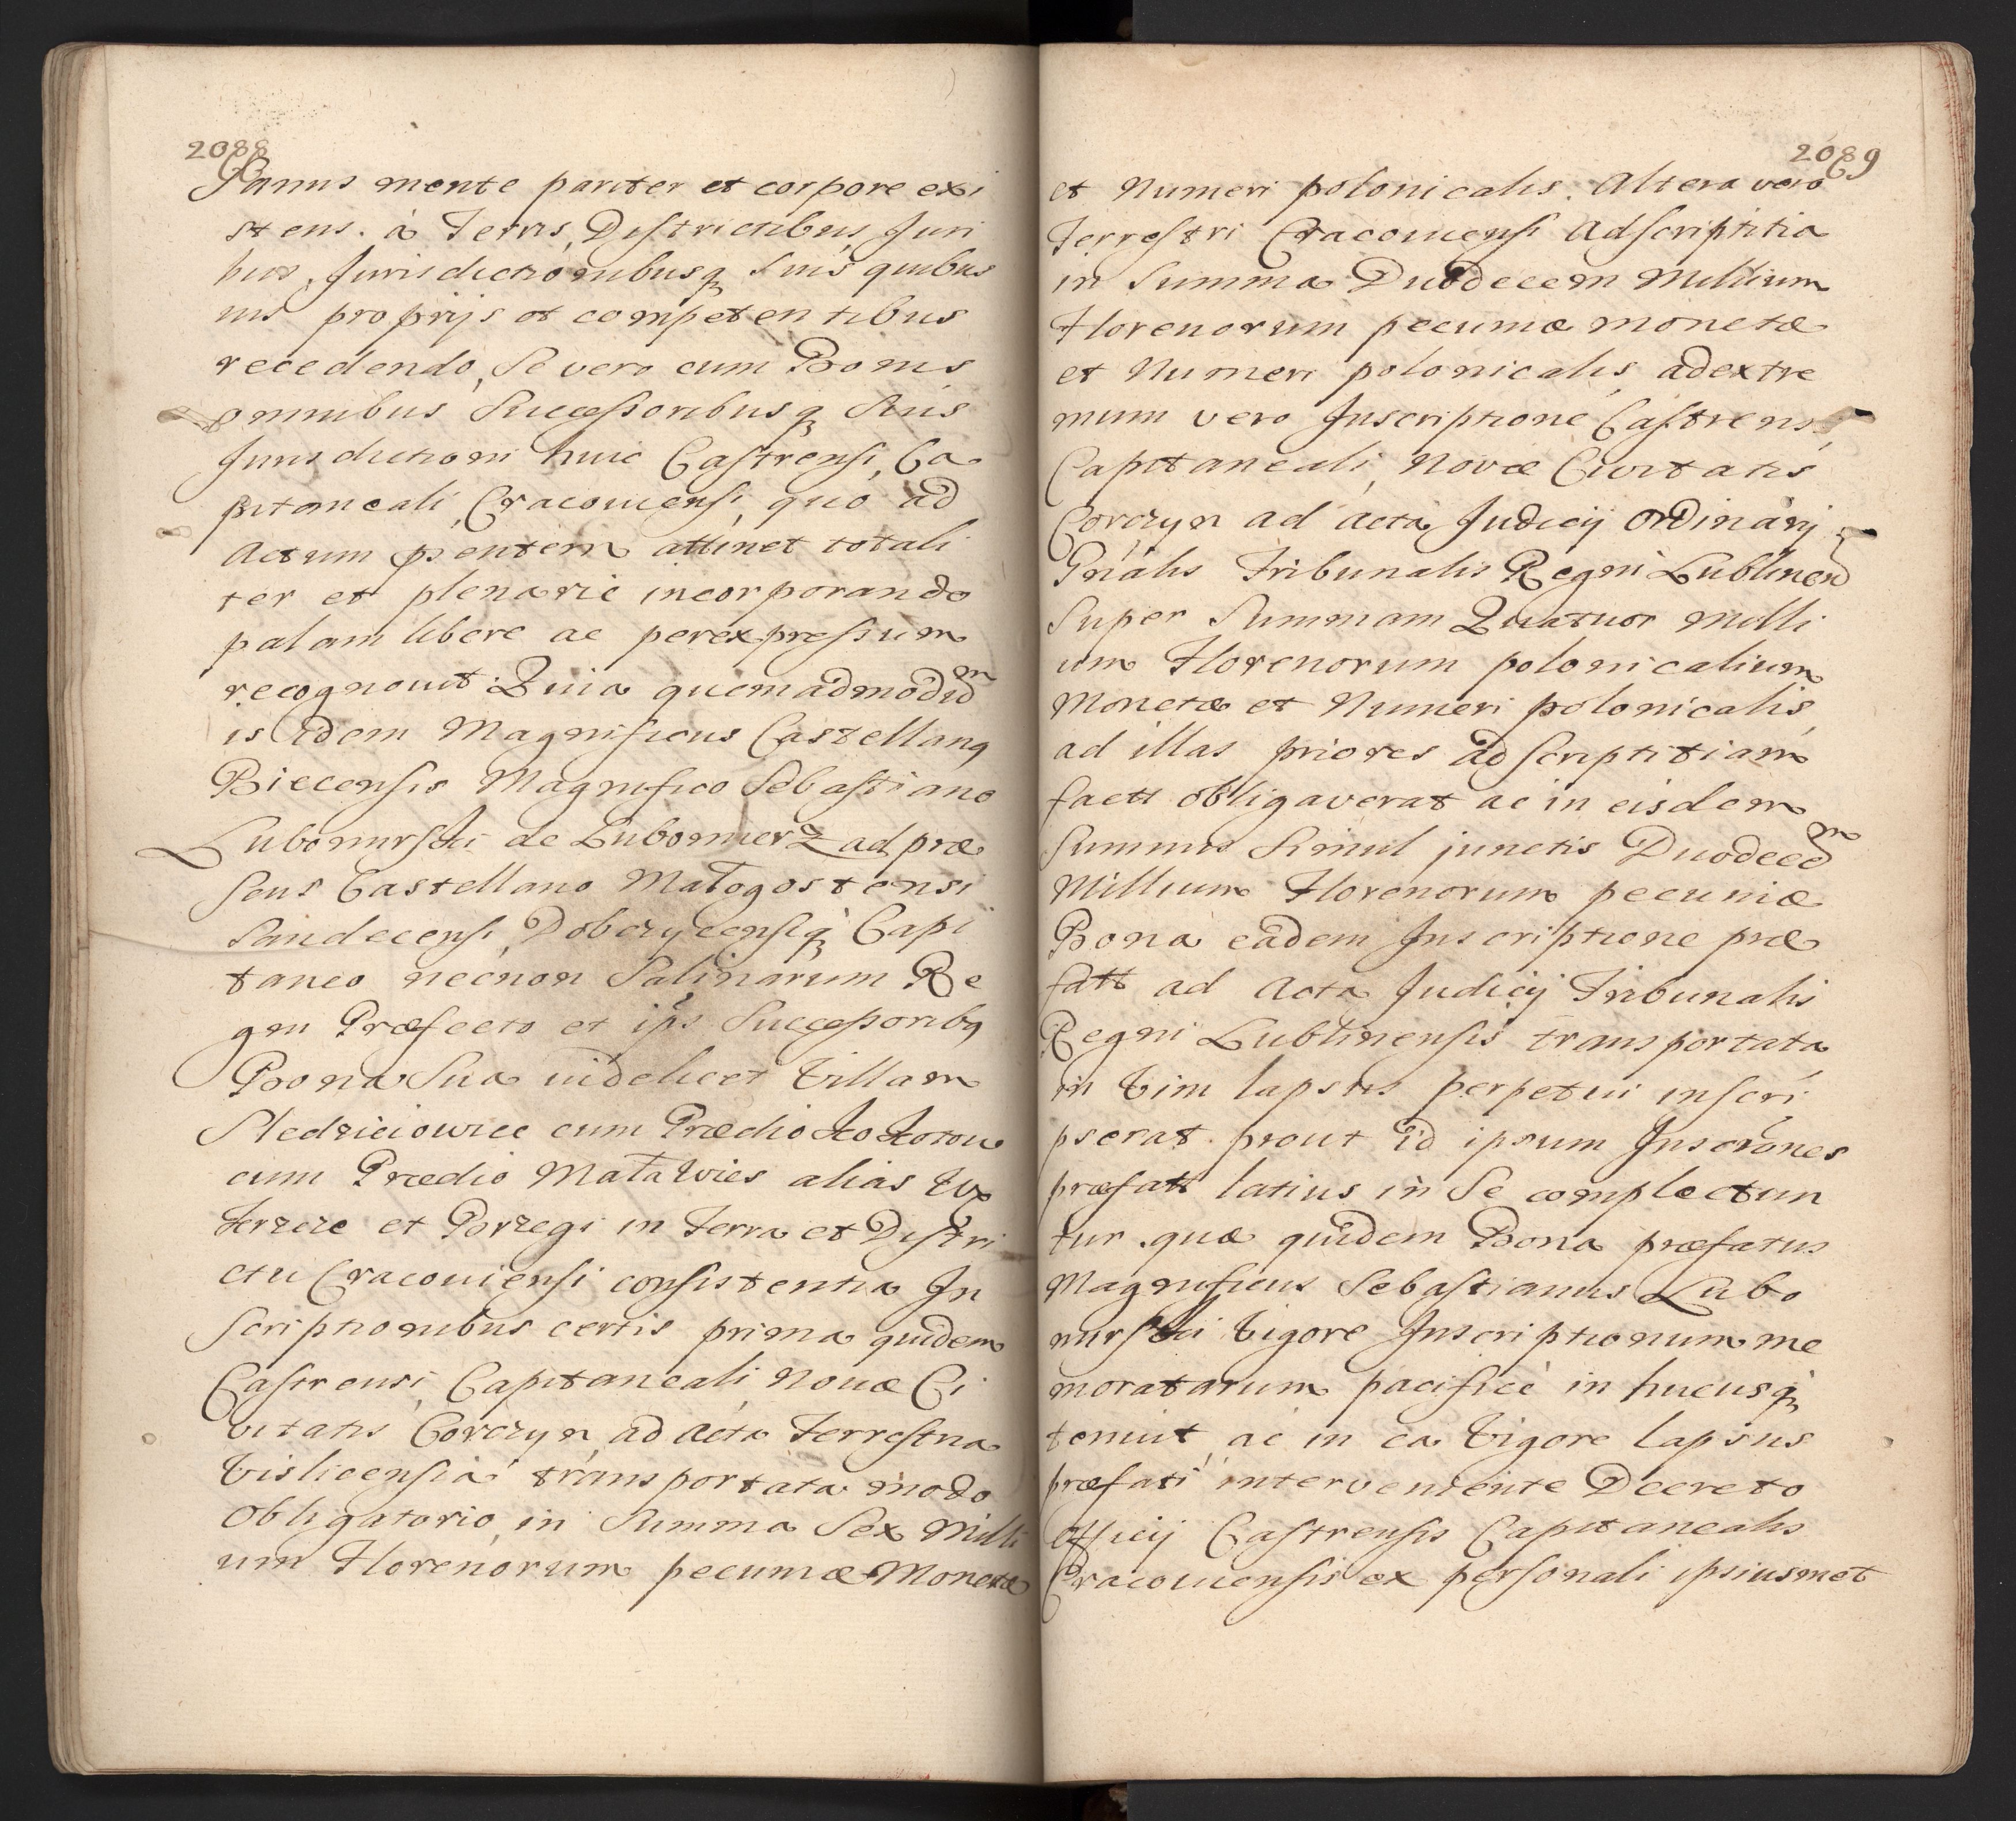 2088
Sanus mente pariter et corpore exi
stens. à Terris, Districtibus, Juri
bus, Jurisdictionibusq suis quibus
vis proprijs et competentibus
recedendo, Se vero cum Bonis
omnibus Successoribusq Suis
Jurisdictioni huic Castrensi, Ca
pitaneali, Cracouiensi, quo ad
Actum pñtem attinet totali
ter et plenarie incorporando
palam libere ac per expressum
recognouit: Quia quemadmodũ
is idem Magnificus Castellanq
Biecensis Magnifico Sebastiano
Lubomirski de Lubomierz ad præ
sens Castellano Małogostensi
Sandecensi, Dobczycensiq Capi
taneo necnon Salinarum Re
gni Præfecto et ips Successoribq
Bona Sua uidelicet Villam
Sledzieiowice cum Prædio Kokotow
cum Prædio Mała Wies alias Wę
terzcze et Porzegi in Terra et Distri
ctu Cracouiensi consistentia In
scriptionibus certis prima quidem
Castrensi, Capitaneali Nouæ Ci
uitatis Corczyn, ad Acta Terrestria
Vislicensia transportata modo
Obligatorio, in Summa Sex Milli
um Florenorum pecuniæ Monetæ
2089
et Numeri polonicalis. Altera vero
Terrestri Cracouiensi Adscriptitia
in Summa Duodecem Millium
Florenorum pecuniæ monetæ
et Numeri polonicalis, ad extre
mum vero Inscriptione Castrensi,
Capitaneali, Novæ Civitatis
Corczyn ad Acta Judicij Ordinarij
Gñalis Tribunalis Regni Lublinen
Super Summam Quatuor Milli
um Florenorum polonicalium
Monetæ et Numeri polonicalis,
ad illas priores adscriptitiam
fact obligaverat ac in eisdem
Summis Simul junctis Duodecẽ
Millium Florenorum pecuniæ
Bona eadem Inscriptione præ
fatt ad Acta Judicij Tribunalis
Regni Lublinensis transportata
in Vim lapsus perpetui inscri
pserat. prout id ipsum Inscrõnes
præfatt latius in Se complectun
tur. quæ quidem Bona præfatus
Magnificus Sebastianus Lubo
mirski Vigore Inscriptionum me
moratarum pacifice in hucusq
tenuit, ac in ea Vigore lapsus
præfati interveniente Decreto
Officij Castrensis Capitanealis
Cracouiensis ex personali ipsiusmet